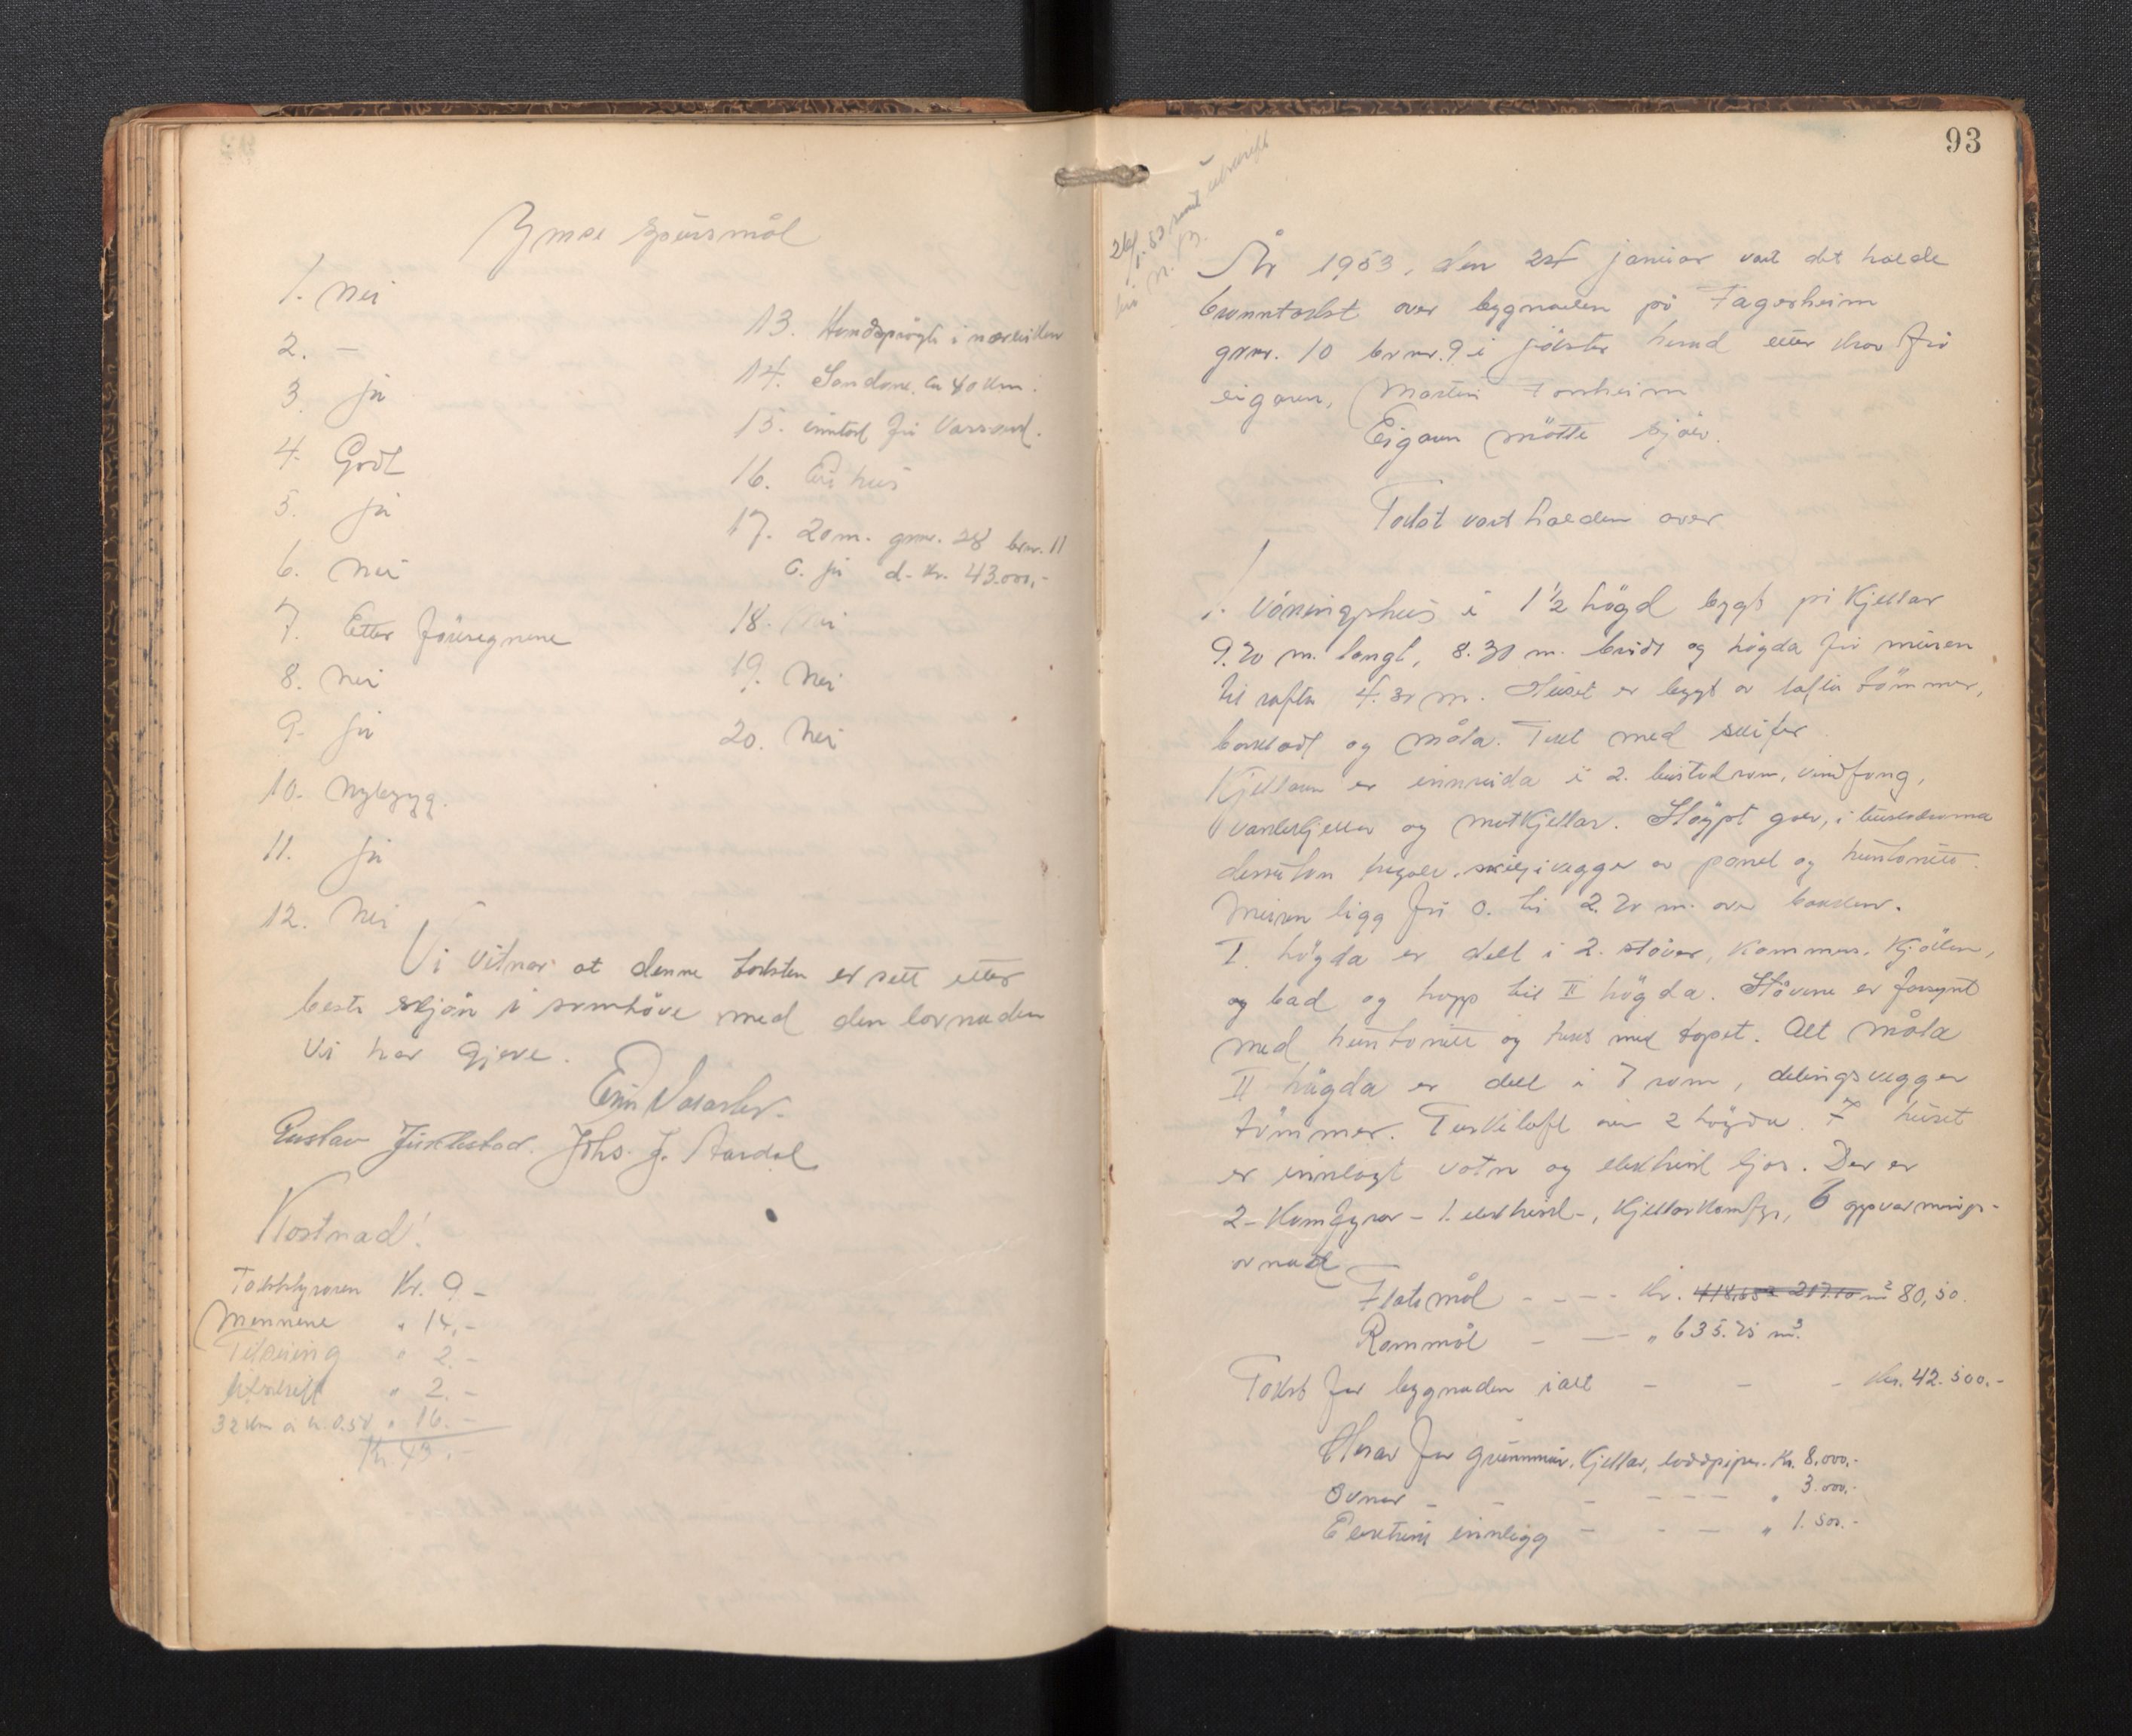 Ymse spursmål
1. nei
2. —
3. ja
4. Godt
5. ja
6. Nei
7. Etter föresegnene
8. Nei
9. ja
10. Nybygg.
11. ja
12. Nei
13. Handsprøyte i nærleiken
14. Sandane. ca 40 km.
15. inntak frå
16. Eit hus
17. 20 m. gnr. 28 brnr. 11
c. ja d. kr. 43.000,-
18. Nei
19. Nei
20. Nei
Vi vitnar at denne taksten er sett etter
beste skjøn i samhöve med den lovnaden
vi har gjeve.
Gustav Johs. J. Aardal
Kostnad!
Takststyraren Kr. 9.-
Mennene " 14.-
" 2.-
Utskrift " 2.-
32 km à kr. 0.50 " 16.-
Kr. 43.-
93
26/1.53 sent utskrift
År 1953, den 24 januar vart det halde
branntakst over bygnaden på Fagerheim
gnr. 10 brnr. 9 i Jölster herad etter krav frå
eigaren, Martin
Eigaren mötte sjølv.
Takst vart halden over
1. Våningshus i 1½ högd bygt på kjellar
9.20 m. langt, 8.30 m. breidt og högda frå muren
til rafta 4.30 m. Huset er bygt av lafta tömmer,
bordkledt og måla. Tekt med skifer
Kjellaren er innreida i 2. bustadrom, vindfang,
vaskekjellar og matkjellar. Støypt golv, i bustadromma
dessutan tregolv. skiljevegger av panel og huntonitt.
Muren ligg frå 0. til 2.20 m. over bakken.
I högda er delt i 2. stover, kammer, kjöken,
og bad og trapp til II högda. Stövene er forsynt
med huntonitt og tekt med tapet. Alt måla
II högda er delt i 7 rom, delingsvegger
tömmer. Tørkeloft over 2 högda. I huset
er innlagt vatn og elektrisk ljos. Der er
2 - Komfyrar - 1. elektrisk -, kjellarkomfyr, 6 oppvarmings-
ovnar
Flatemål - - - - Kr. 80,50.
Rommål - — " 635.25 m³.
Takst for bygnaden i alt - - - Kr. 42.500.-
Herav for grunnmur, kjellar, loddpipe. Kr. 8.000.-
Ovnar - - - - - - " 3.000.-
Elektrisk innlegg - - — " 1.500.-